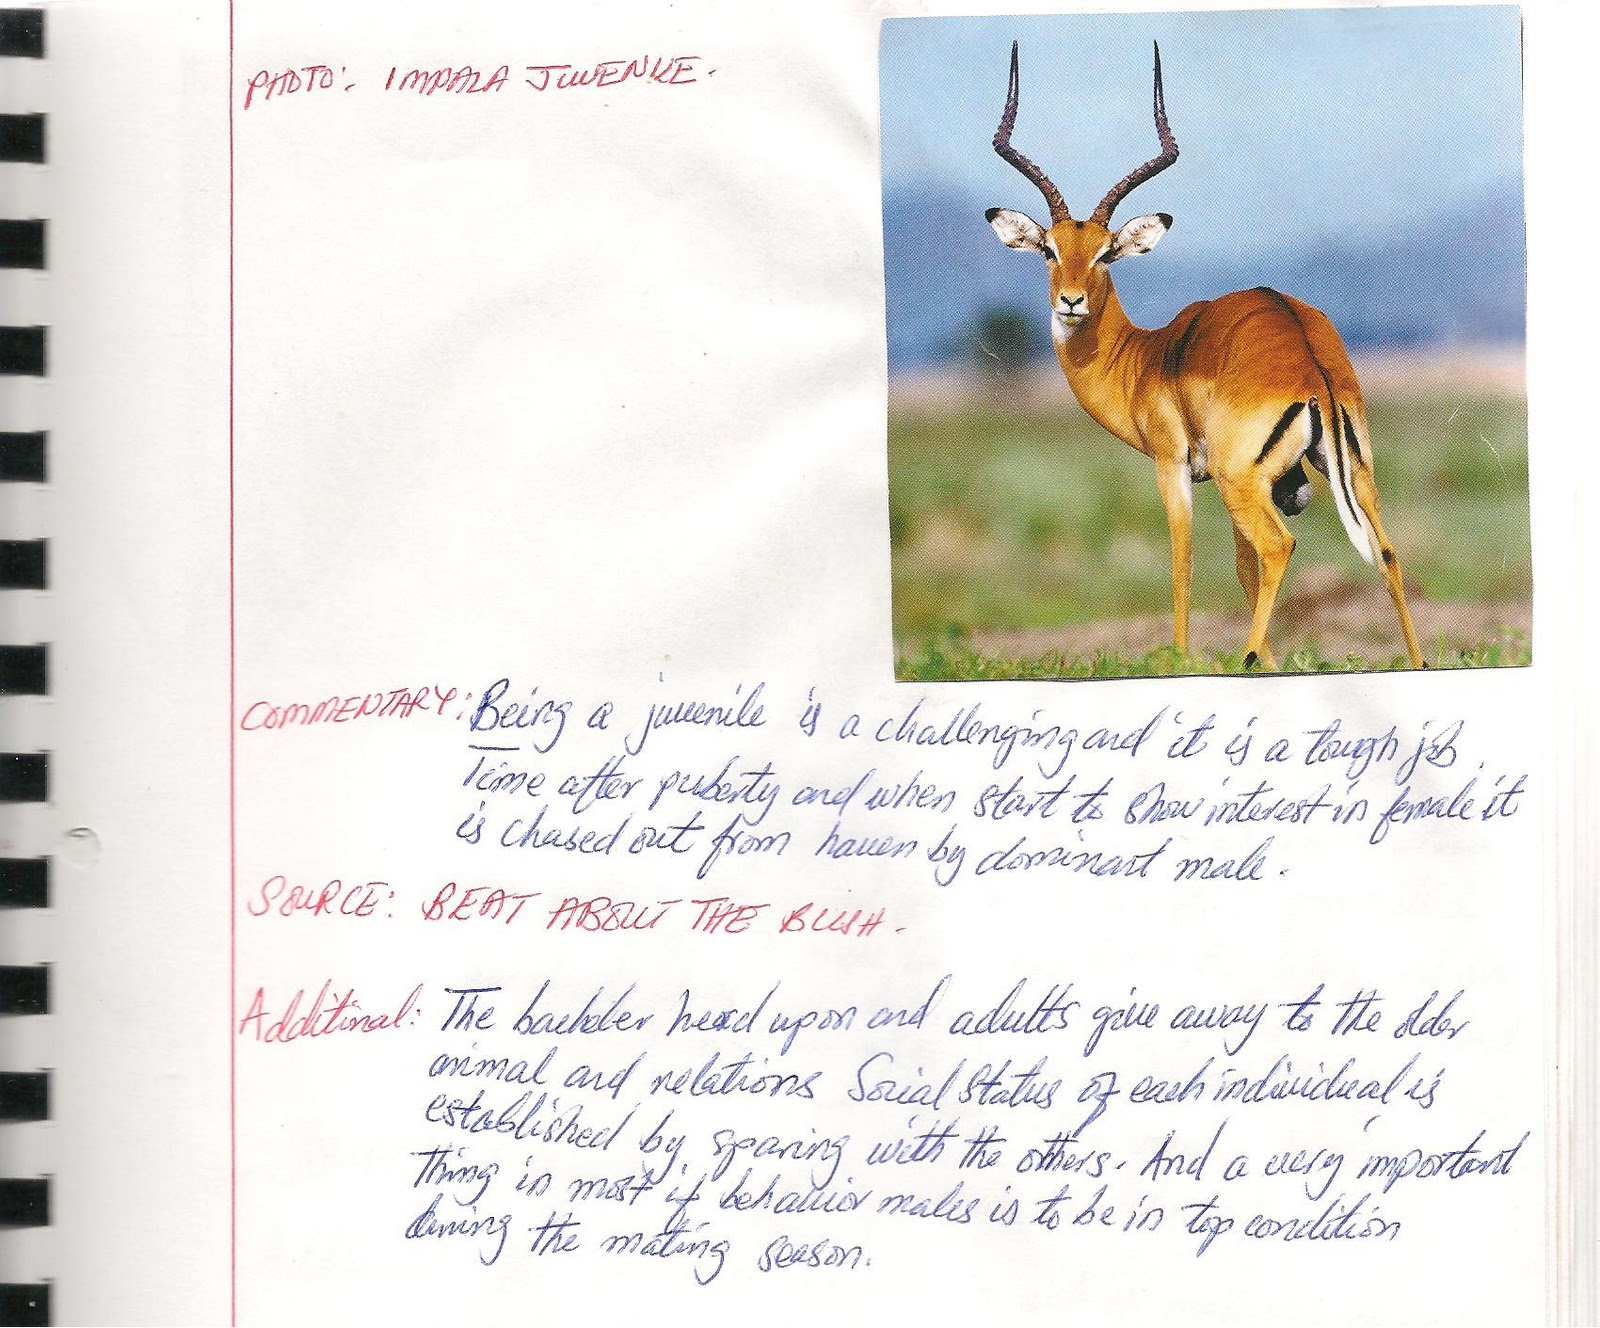 PHOTO: IMPALA JUVENILE.
COMMENTARY: Being a juvenile is a challenging and it is a tough job.
Time after puberty and when start to show interest in female it
is chased out from haven by dominant male.
SOURCE: BEAT ABOUT THE BUSH.
Additinal: The bacheler heard upon and adults give away to the older
animal and relations Social Status of each individual is
established by sparing with the others. And a very important
thing in most if behavior males is to be in top condition
during the mating season.